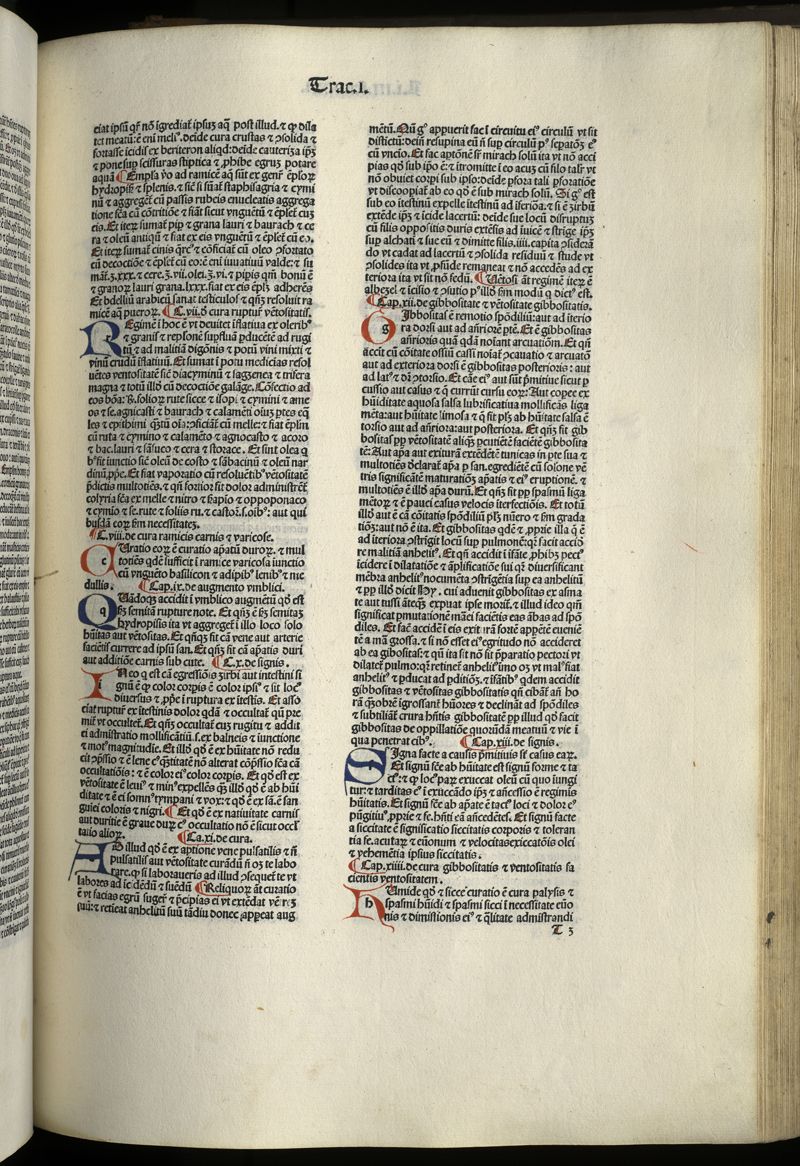 Trac.i.
ciat ipsū qr̄ nō īgrediat̄ ipsuȝ aq̄ post illud. ⁊ ꝙ dila
tet meatū: ē eni meliꝰ. deide cura crustas ⁊ ꝯsolida ⁊
fortasse īcidis ex heriteron aliqd: deide cauteriza ipȝ
⁊ pone sup scissuras stiptica ⁊ ꝓhibe egruȝ potare
aquā Empla v̄o ad ramicē aq̄ sūt ex gen̄r ēplsoꝝ
hydropisꝭ ⁊ splenis. ⁊ sic̄ si sūat̄ staphisagria ⁊ cymi
nū ⁊ aggreget̄ cū passis rubeis enucleatis aggrega
tione sc̄a cū cōtritiōe ⁊ fiat̄ sicut vnguētū ⁊ ēplset̄ cuȝ
eis. Et iteꝝ sumat̄ pip̄ ⁊ grana lauri ⁊ baurach ⁊ ce
ra ⁊ oleū antiquū ⁊ fiat ex eis vnguētū ⁊ ēplset̄ cū eo.
Et iteꝝ sumat̄ cinis qr̄cꝰ ⁊ cōficiat̄ cū oleo ꝯfortato
cū decoctiōe ⁊ ēplset̄ cū eo: ē eni iuuatiuū valde: ⁊ su
mat̄.ʒ.xxx. ⁊ cere.ʒ.vii. olei.ʒ.vi. ⁊ pipis qm̄ bonū ē
⁊ granoꝝ lauri grana.lxxx. fiat ex eis ēpls̄ adherēs
Et bdelliū arabicū sanat testiculos ⁊ qn̄ȝ resoluit ra
micē aq̄ pueroꝝ. C.vii.d̄ cura ruptur̄ vētositatis.
REgimē ī hoc ē vt deuitet īflatiua ex olerib̄ꝰ
⁊ granis ⁊ repsonē supfluā ꝓducētē ad rugi
tū ⁊ ad malitiā digōnis ⁊ potū vini mixti ⁊
vinū crudū īflatiuū. Et sumat ī potu medicias resol
uētes ventositatē sic̄ diacyminū ⁊ saggenea ⁊ trifera
magna ⁊ totū illḋ cū decoctiōe galāge. Cōfectio ad
eos bōa: ꝶ. folioꝝ rute sicce ⁊ isopi ⁊ cymini ⁊ ame
os ⁊ se. agnicasti ⁊ baurach ⁊ calamēti oiuȝ ptes eq̄
les ⁊ epithimi q̄tū oīa: ꝯficiāt̄ cū melle: ⁊ fiat ēplm̄
cū ruta ⁊ cymino ⁊ calamēto ⁊ agnocasto ⁊ acoro
⁊ bac. lauri ⁊ sāsuco ⁊ cera ⁊ storace. Et sint olea q̄
bꝰfit iunctio sic̄ oleū de costo ⁊ sābacinū ⁊ oleū nar
dinū ꝓpe. Et fiat vaporatio cū resoluētibꝰ vētositatē
p̄dictis multotiēs. ⁊ qn̄ fortior fit dolor administrēt̄
colyria sc̄a ex melle ⁊ nitro ⁊ ẜapio ⁊ oppoponaco
⁊ cymio ⁊ se. rute ⁊ foliis ru. ⁊ castoꝛ. s. oibꝰ: aut qui
busdā eoꝝ ẜm necessitateȝ.
C.viii.de cura ramicis carnis ⁊ varicose.
CUratio eoꝝ ē curatio apatū duroꝝ. ⁊ mul
totiēs qdē sufficit ī ramice varicosa iunctio
cū vnguēto basilicon ⁊ adipibꝰ lenibꝰ ⁊ me
dullis. Cap.ix.de augmento vmblici.
QUādoqȝ accidit ī vmblico augmētū qḋ est
ẜȝ semitā rupture note. Et qn̄ȝ ē ẜȝ semitaȝ
hydropisis ita vt aggreget̄ ī illo loco solo
hūitas aut vētositas. Et qn̄qȝ fit cā vene aut arterie
faciētis currere ad ipsū san. Et qn̄ȝ fit cā apatis duri
aut additiōe carnis sub cute. C.x.de signis.
IN eo q est cā egressiōis ȝirbi aut intestini si
gnū ē ꝙ color corpis ē color ipsiꝰ ⁊ fit locꝰ
diuersus ⁊ ꝓpe ī ruptura ex itestis. Et asso
ciat̄ ruptur̄ ex itestinis dolor qdā ⁊ occultat̄ qn̄ pre
mit̄ vt occultet̄. Et qn̄ȝ occultat̄ cuȝ rugitu ⁊ addit
ei admistratio mollificātiū. s. ex balneis ⁊ iunctione
⁊ motꝰ magnitudie. Et illḋ qḋ ē ex hūitate nō redu
cit ꝯpssio ⁊ ē lene cꝰ q̄titatē nō alterat cōpssio sc̄a cā
occultatiōis: ⁊ ē color eiꝰ color corpis. Et qḋ est ex
vētositate ē leuiꝰ ⁊ minꝰ expellēs q̄ȝ illḋ qḋ ē ab hūi
ditate ⁊ ē ei somnꝰ tympani ⁊ vox: ⁊ qḋ ē ex sā. ē san
guiei coloris ⁊ nigri. Et qḋ ē ex natiuitate carnis
aut duritie ē graue duꝝ cꝰ occultatio nō ē sicut occl̄
tatio alioꝝ. Ca.xi.de cura.
AD illud qḋ ē ex aptione vene pulsatilis ⁊ n̄
pulsatilis aut vētositate curādū n̄ oȝ te labo
rare. ꝙ si laboraueris ad illud ꝯsequet̄ te vt
labores ad īcidēdū ⁊ suēdū Reliquoꝝ āt curatio
ē vt facias egrū suger̄ ⁊ p̄cipias ei vt extēdat vētrē
suū: ⁊ retieat anhelitū suū tādiu donec appeat aug
mētū. Nū gͦ appuerit fac ī circuitu eiꝰ circulū vt sit
distictū: dein̄ resupina eū n̄ sup circulū pꝰ sepatōȝ eꝰ
cū vncio. Et fac aptōnē sr̄ mirach solū ita vt nō acci
pias qḋ sub ipo ē: ⁊ itromitte ī eo acuȝ cū filo talr̄ vt
nō obuiet corpi sub ipso: deide ꝑfora tali ꝑforatiōe
vt discoopiat̄ ab eo qḋ ē sub mirach solū. Si gͦ est
sub eo itestinū expelle itestinū ad īferiōa: ⁊ si ē ȝirbū
extēde ipȝ ⁊ īcide lacertū: deide sue locū disruptuȝ
cū filis oppositis duris extēsis ad iuicē ⁊ strige ipȝ
sup alchati ⁊ sue cū ⁊ dimitte filis.iiii.capita ꝯsiderā
do vt cadat ad lacertū ⁊ ꝯsolida residuū ⁊ stude vt
ꝯsolides ita vt ꝓfūde remaneat ⁊ nō accedēs ad ex
teriora ita vt sit nō fedū. Uētosi āt regimē iteꝝ ē
alheȝel ⁊ īcisio ⁊ ꝯsutio pꝰ illḋ ẜm modū q dictꝰ est.
Cap.xii.de gibbositate ⁊ vētositate gibbositatis.
GIbbositas ē remotio spōdiliū: aut ad iterio
ra dorsi aut ad āteriorē ptē. Et ē gibbositas
āterioris quā qdā noīant arcuatiōm. Et qn̄
accīt cū cōitate ossiū cassi noīat̄ ꝯcauatio ⁊ arcuatō
aut ad exteriora dorsi ē gibbositas posterioris: aut
ad latꝰ ⁊ dr̄ ꝯtorsio. Et cāe eiꝰ aut sūt p̄mitiue sicut ꝑ
cussio aut casus ⁊ q currūt cursu eoꝝ: Aut copee ex
hūiditate aquosa falsa lubrificatiua mollificās liga
mēta: aut hūitate limosa ⁊ q fit pls̄ ab hūitate falsa ē
torsio aut ad āteriora: aut posteriora. Et qn̄ȝ fit gib
bositas ꝓp vētositatē aliqȝ pcutiētē faciētē gibbosita
tē: Aut apa aut exiturā extēdētē tunicas in pte sua ⁊
multotiēs declarat̄ apa p san. egrediētē cū solone vē
tris significātē maturatiōȝ apatis ⁊ eiꝰ eruptionē. ⁊
multotiēs ē illḋ apa durū. Et qn̄ȝ fit ꝓp spasmū liga
mētoꝝ ⁊ ē pauci casus velocis iterfectiōis. Et totū
illḋ aut ē cā cōitatis spōdiliū pls̄ nūero ⁊ ẜm grada
tiōȝ: aut nō ē ita. Et gibbositas qdē ⁊ ꝓprie illa q ē
ad iteriora ꝯstrigit locū sup pulmonē: qr̄ facit accid̄e
re malitiā anhelitꝰ. Et qn̄ accidit ī īfātie ꝓhibȝ pecꝰ
īcidere ī dilatatiōe ⁊ āplificatiōe sui qr̄ diuersificant
mēbra anhelitꝰ nocumēta ꝯstrigētia sup ea anhelitū
⁊ ꝓp illḋ dicit Hy. cui aduenit gibbositas ex asma
te aut tussi āteqȝ expuat ipse morit̄. ⁊ illud ideo qm̄
significat pmutationē māei faciētis eas ābas ad spō
diles. Et fac̄ accidē ī eis exitrā fortē appētē eueniē
tē a mā grossa. ⁊ si nō esset eiꝰ egritudo nō accideret
ab ea gibositas: ⁊ qn̄ ita fit nō fit p̄paratio pectori vt
dilatet̄ pulmo: qr̄ retinet̄ anhelitꝰ: īmo oȝ vt malꝰ fiat
anhelitꝰ ⁊ ꝓducat ad pditiōȝ. ⁊ īfātibꝰ qdem accidit
gibbositas ⁊ vētositas gibbositatis qn̄ cibāt̄ an̄ ho
rā q̄ȝobȝ īgrossant̄ hūores ⁊ declināt ad spōdiles
⁊ subtiliāt̄ crura hn̄tis gibbositatē ꝓp illud qḋ facit
gibbositas de oppillatiōe quorūdā meatuū ⁊ vie ī
qua penetrat cibꝰ. Cap.xiii.de signis.
SIgna facte a causis p̄mitiuis sr̄ casus eaꝝ.
Et signū scē ab hūitate est signū forme ⁊ ta
ctꝰ: ⁊ ꝙ locꝰ paꝝ exuccat oleū cū quo iungi
tur: ⁊ tarditas eꝰ ī exuccādo ipȝ ⁊ ancessio ē regimis
hūitatis. Et signū scē ab apate ē tactꝰ loci ⁊ dolor eꝰ
pūgitiuꝰ, ꝓprie ⁊ fe. hn̄ti eā ancedētes̄. Et signū facte
a siccitate ē significatio siccitatis corporis ⁊ toleran
tia fe. acutaꝝ ⁊ eūonum ⁊ velocitas exiccatōis olei
⁊ vehemētia ipsius siccitatis.
Cap.xiiii.de cura gibbositatis ⁊ ventositatis fa
cientis ventositatem.
HUmide qḋ ⁊ sicce curatio ē cura palysis ⁊
spasmi hūidi ⁊ spasmi sicci ī necessitate euō
nis ⁊ dimistionis eiꝰ ⁊ q̄litate admistrandi
T 3